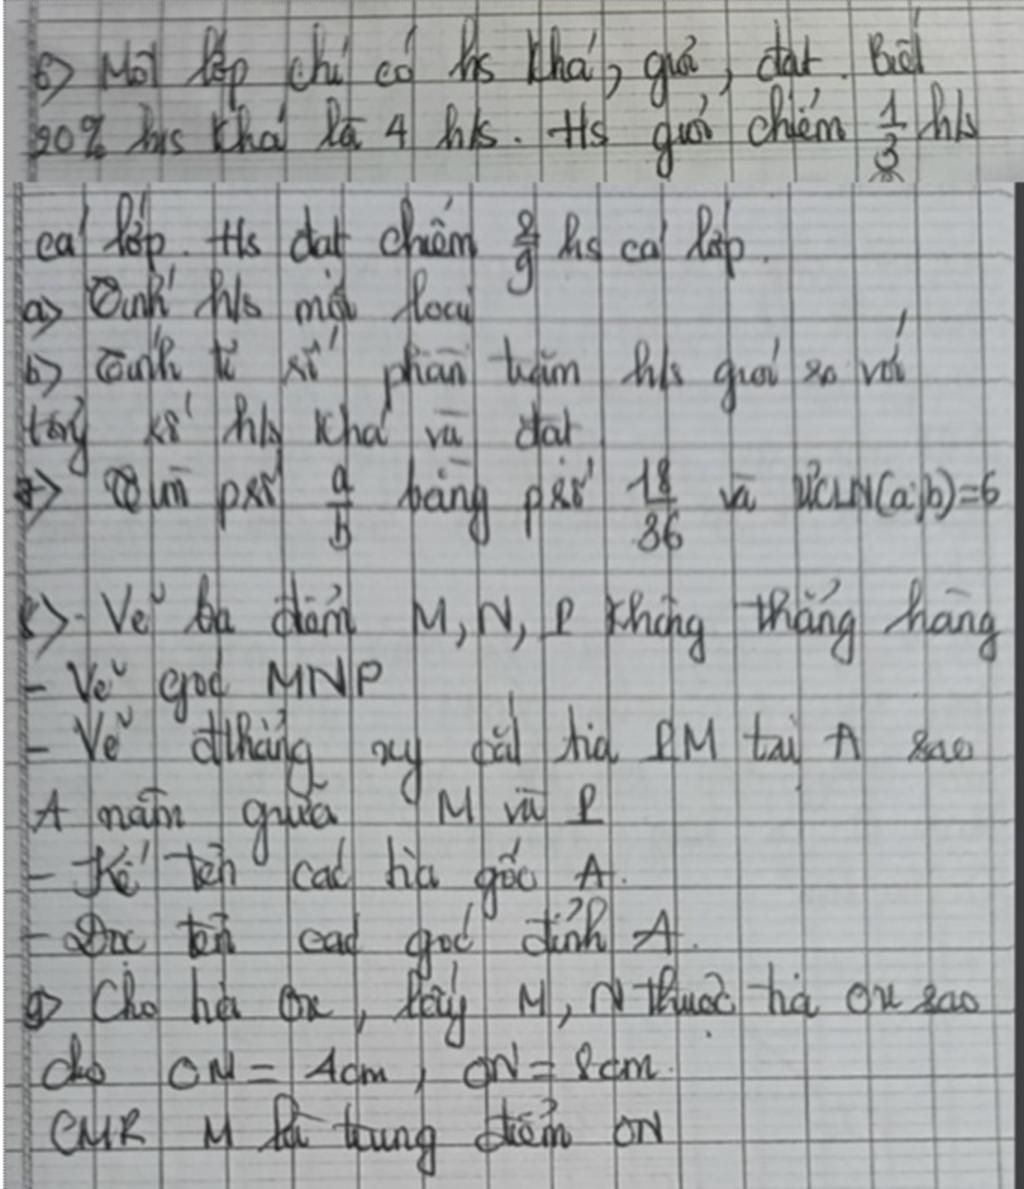 6) Một lớp chỉ có hs khá, giỏi, đạt. Biết
20% hs khá là 4 hs. Hs giỏi chiếm 1/3 hs
cả lớp. Hs đạt chiếm 2/9 hs cả lớp.
a) Tính h/s mỗi loại
b) Tính tỉ số phần trăm h/s giỏi so với
tổng số h/s khá và đạt
7) Tìm psố a/b bằng psố 18/36 và ƯCLN(a;b)=6
8) - Vẽ ba điểm M, N, P không thẳng hàng
- Vẽ góc MNP
- Vẽ đthẳng xy cắt tia PM tại A sao
A nằm giữa M và P
- Kể tên các tia gốc A.
- Đọc tên các góc đỉnh A.
9) Cho tia Ox, lấy M, N thuộc tia Ox sao
cho OM = 4cm, ON = 8cm.
CMR M là trung điểm ON